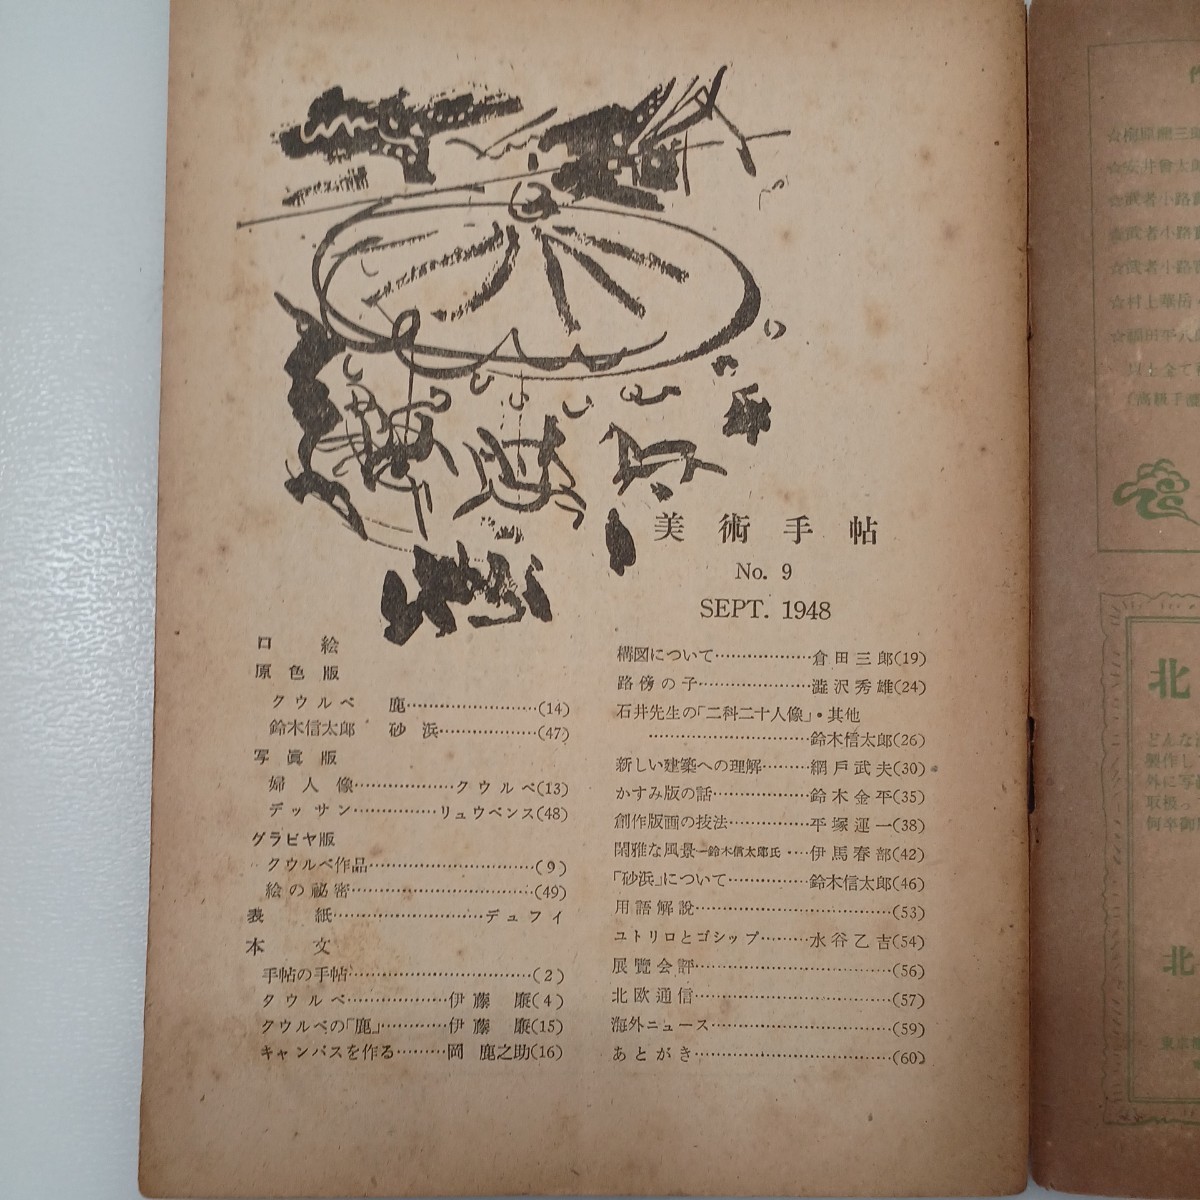 美術手帖
No. 9
SEPT. 1948
口絵
原色版
クウルベ 鹿……………………(14)
鈴木信太郎 砂浜………………(47)
写眞版
婦人像………………クウルベ(13)
デッサン……………リュウベンス(48)
グラビヤ版
クウルベ作品…………………………(9)
絵の祕密……………………………(49)
表紙………………………デュフイ
本文
手帖の手帖……………………………(2)
クウルベ………………伊藤廉(4)
クウルベの「鹿」…………伊藤廉(15)
キャンバスを作る………岡鹿之助(16)
構図について………………倉田三郎(19)
路傍の子…………………澁沢秀雄(24)
石井先生の「二科二十人像」・其他
…………………………鈴木信太郎(26)
新しい建築への理解………網戸武夫(30)
かすみ版の話………………鈴木金平(35)
創作版画の技法……………平塚運一(38)
閑雅な風景―鈴木信太郎氏…・伊馬春部(42)
「砂浜」について……………鈴木信太郎(46)
用語解説………………………………(53)
ユトリロとゴシップ………水谷乙吉(54)
展覧会評………………………………(56)
北欧通信………………………………(57)
海外ニュース…………………………(59)
あとがき………………………………(60)
☆安井曾太郎
☆武者小路
☆武者小路
☆武者小路
☆村上華岳
☆福田平八
以上全て
(高級手
北
どんな
製作し
外に写
取扱っ
何卒御
北
東京都